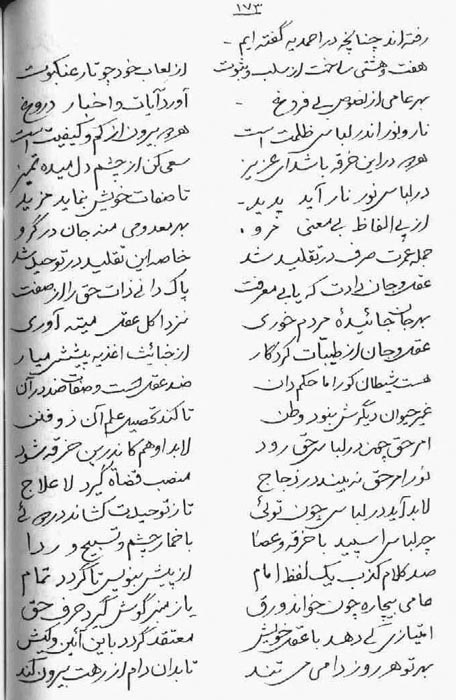 ۱۷۳
رفته‌اند چنانچه در احمدیه گفته ایم -
هفت و هشتی ساخت از سلب و ثبوت از لعاب خود چو تار عنکبوت
بهر عامی از نصوص بی فروغ - آورد آیات و اخبار دروغ
نار و نور اندر لباس ظلمت است هر چه بیرون از کم و کیفیت است
هر چه در این خرقه باشد ای عزیز سعی کن از چشم دل میده تمیز
در لباس نور نار آید پدید - تا صفات خویش بنماید مزید
از پی الفاظ بی معنی مرو . بهر بعد وحی منه جان در گرو
جمله عمرت صرف در تقلید شد خاصه این تقلید در توحید شد
عقل و جان دادت که یابی معرفت پاک دانی ذات حق را از صفت
بهر جان جائیدهٔ مردم خوری نزد اکل عقل میته آوری
عقل و جان از طیبات کردگار از خبائث اغذیه پیشش میار
هست شیطان کور اما حکم دان ضد عقل است و صفات ضد در آن
غیر حیوان دیگرش نبود وطن تا کند تحصیل علم آن ذو فنن
امر حق چون در لباس حق رود لابد او هم کاندرین خرقه شود
نور امر حق نه بیند در دجاج منصب قضاة گیرد لا علاج
لابد آید در لباس چون توئی تا ز توحیدت کشاند در دوئی
در لباس اسپید با خرقه و عصا با خمار چشم و تسبیح و ردا
صد کلام کذب یک لفظ امام از پیش بنویس تا گردد تمام
عامی بیچاره چون خواند ورق یا ز منبر گوش گیرد حرف حق
امتیازی کی دهد با عقل خویش معتقد گردد باین آئین و کیش
بهر تو هر روز دامی می تند تا بدان دام از رهت بیرون کند